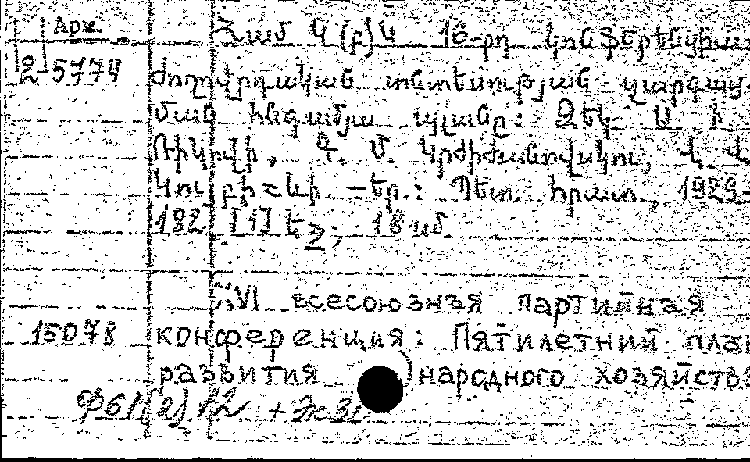 Арх.
Համ Կ(բ)Կ 16-րդ կոնֆերենցիա
2-5774 ժողովրդական տնտեսության զարգաց-
ման հնգամյա պլանը: Զեկ. Ա. Ի.
Ռիկովի, Գ. Մ. Կրժիժանովսկու, Վ. Վ.
Կույբիշևի –Եր.: Պետ. հրատ., 1929-
182 [1] էջ, 18 սմ.
XVI всесоюзная партийная
15078 конференция: Пятилетний план
развития народного хозяйства